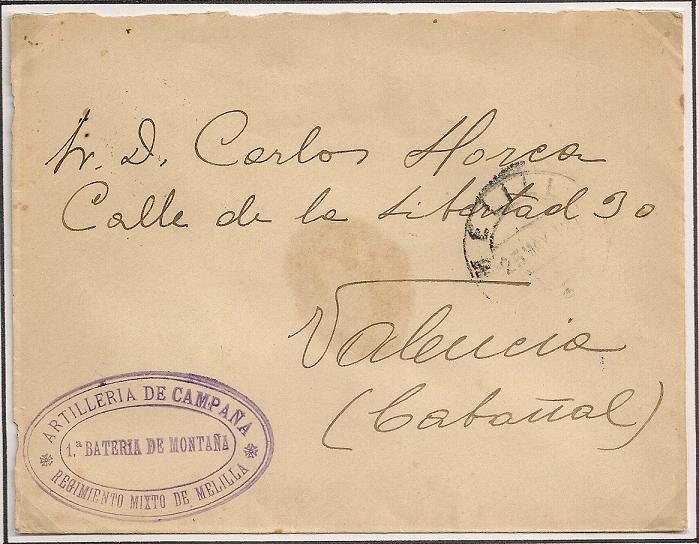 Sr. D. Carlos Horca
Calle de la Libertad 30
Valencia
(Cabañal)
MELILL
23 MAY
ARTILLERIA DE CAMPAÑA
1.ª BATERIA DE MONTAÑA
REGIMIENTO MIXTO DE MELILLA